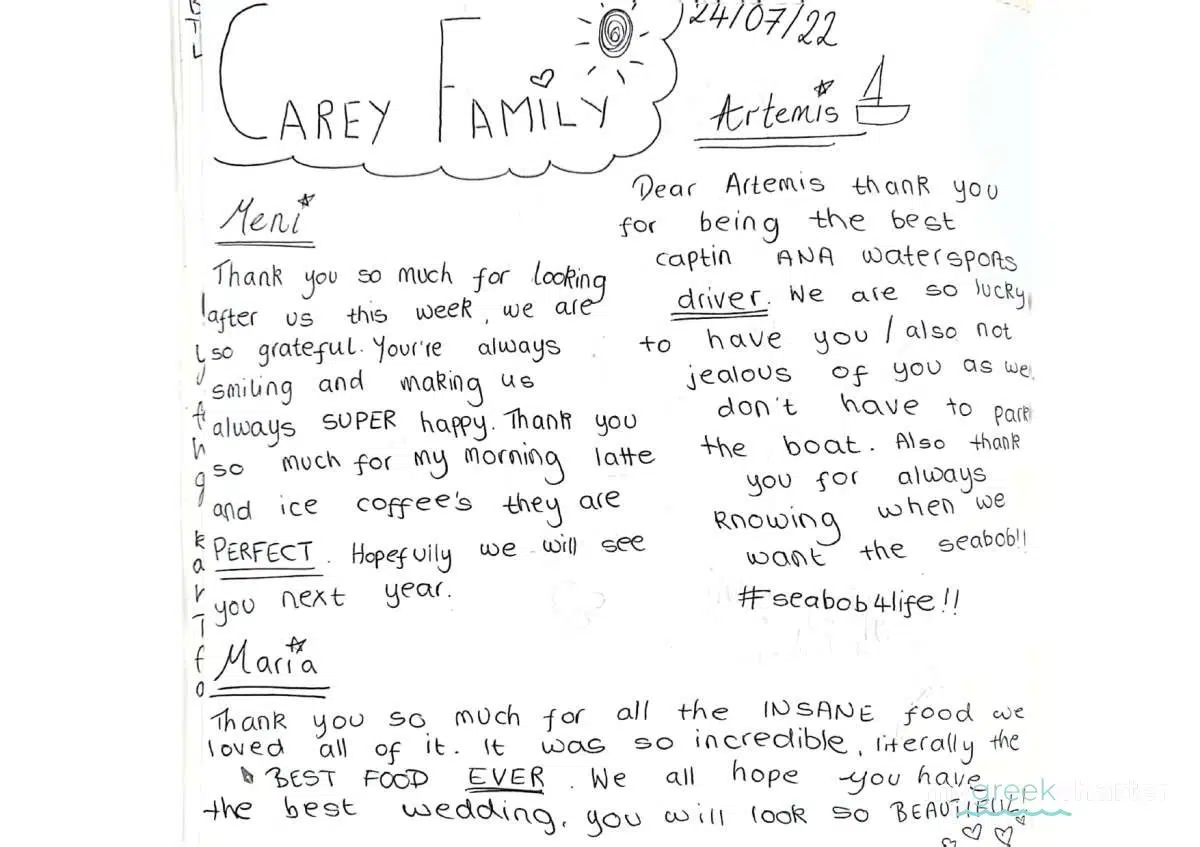 CAREY FAMILY
24/07/22
Meni
Thank you so much for looking
after us this week, we are
so grateful. Your're always
smiling and making us
always SUPER happy. Thank you
so much for my morning latte
and ice coffee's they are
PERFECT. Hopefully we will see
you next year.
Artemis
Dear Artemis thank you
for being the best
captin ANA watersports
driver. We are so lucky
to have you / also not
jealous of you as we
don't have to park
the boat. Also thank
you for always
knowing when we
want the seabob!!
#seabob4life!!
Maria
Thank you so much for all the INSANE food we
loved all of it. It was so incredible, literally the
BEST FOOD EVER. We all hope you have
the best wedding, you will look so BEAUTIFUL
greek charter